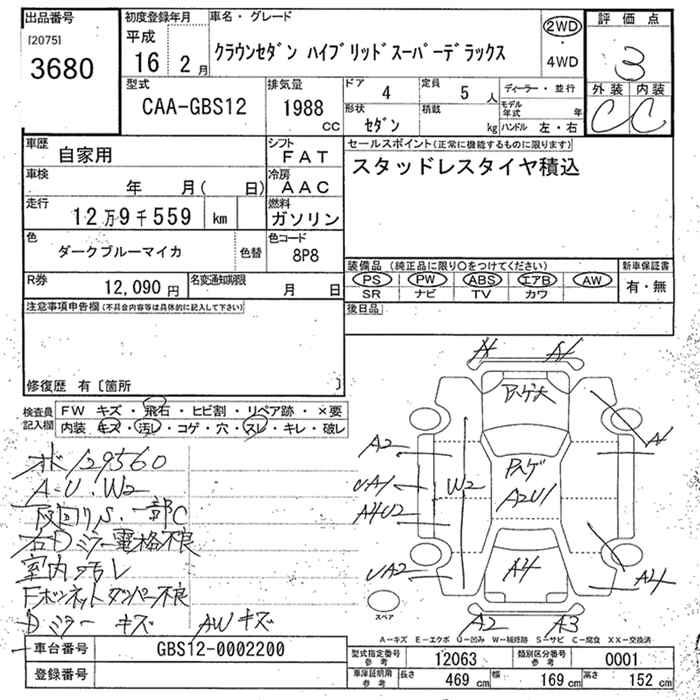 出品番号
[2075]
3680
初度登録年月
平成
16 2月
車名・グレード
クラウンセダン ハイブリッドスーパーデラックス
2WD
4WD
評価点
3
外装 内装
C C
型式
CAA-GBS12
排気量
1988
CC
ドア 4
定員 5人
形状
セダン
積載
kg
ディーラー・並行
モデル年式 年
ハンドル 左・右
車歴
自家用
シフト
FAT
車検
年 月( 日)
冷房
AAC
走行
12万9千559 km
燃料
ガソリン
色
ダークブルーマイカ
色替
色コード
8P8
R券
12,090円
名変通知期限
月 日
セールスポイント(正常に機能するものに限ります)
スタッドレスタイヤ積込
装備品(純正品に限り○をつけてください)
PS PW ABS エアB AW
SR ナビ TV カワ
新車保証書
有・無
後日品
注意事項申告欄(不具合内容等は具体的に記入して下さい)
修復歴 有〔箇所 〕
検査員記入欄
FW キズ・飛石・ヒビ割・リペア跡・×要
内装 キズ・汚レ・コゲ・穴・スレ・キレ・破レ
オド129560
A・U・W2
下回りS・一部C
右Dミラー電格不良
室内汚レ
Fボンネットダンパー不良
Dミラーキズ AWキズ
A1 A1
アスゲ大
A2
UA1
A4U2
UA2
W2
アスゲ
A2U1
A4
A1
A4
A2 A3
スペア
A-キズ E-エクボ U-凹み W-補修跡 S-サビ C-腐食 XX-交換済
車台番号
GBS12-0002200
登録番号
型式指定番号
参考
12063
類別区分番号
参考
0001
車庫証明用
参考
長さ 469 cm 幅 169 cm 高さ 152 cm